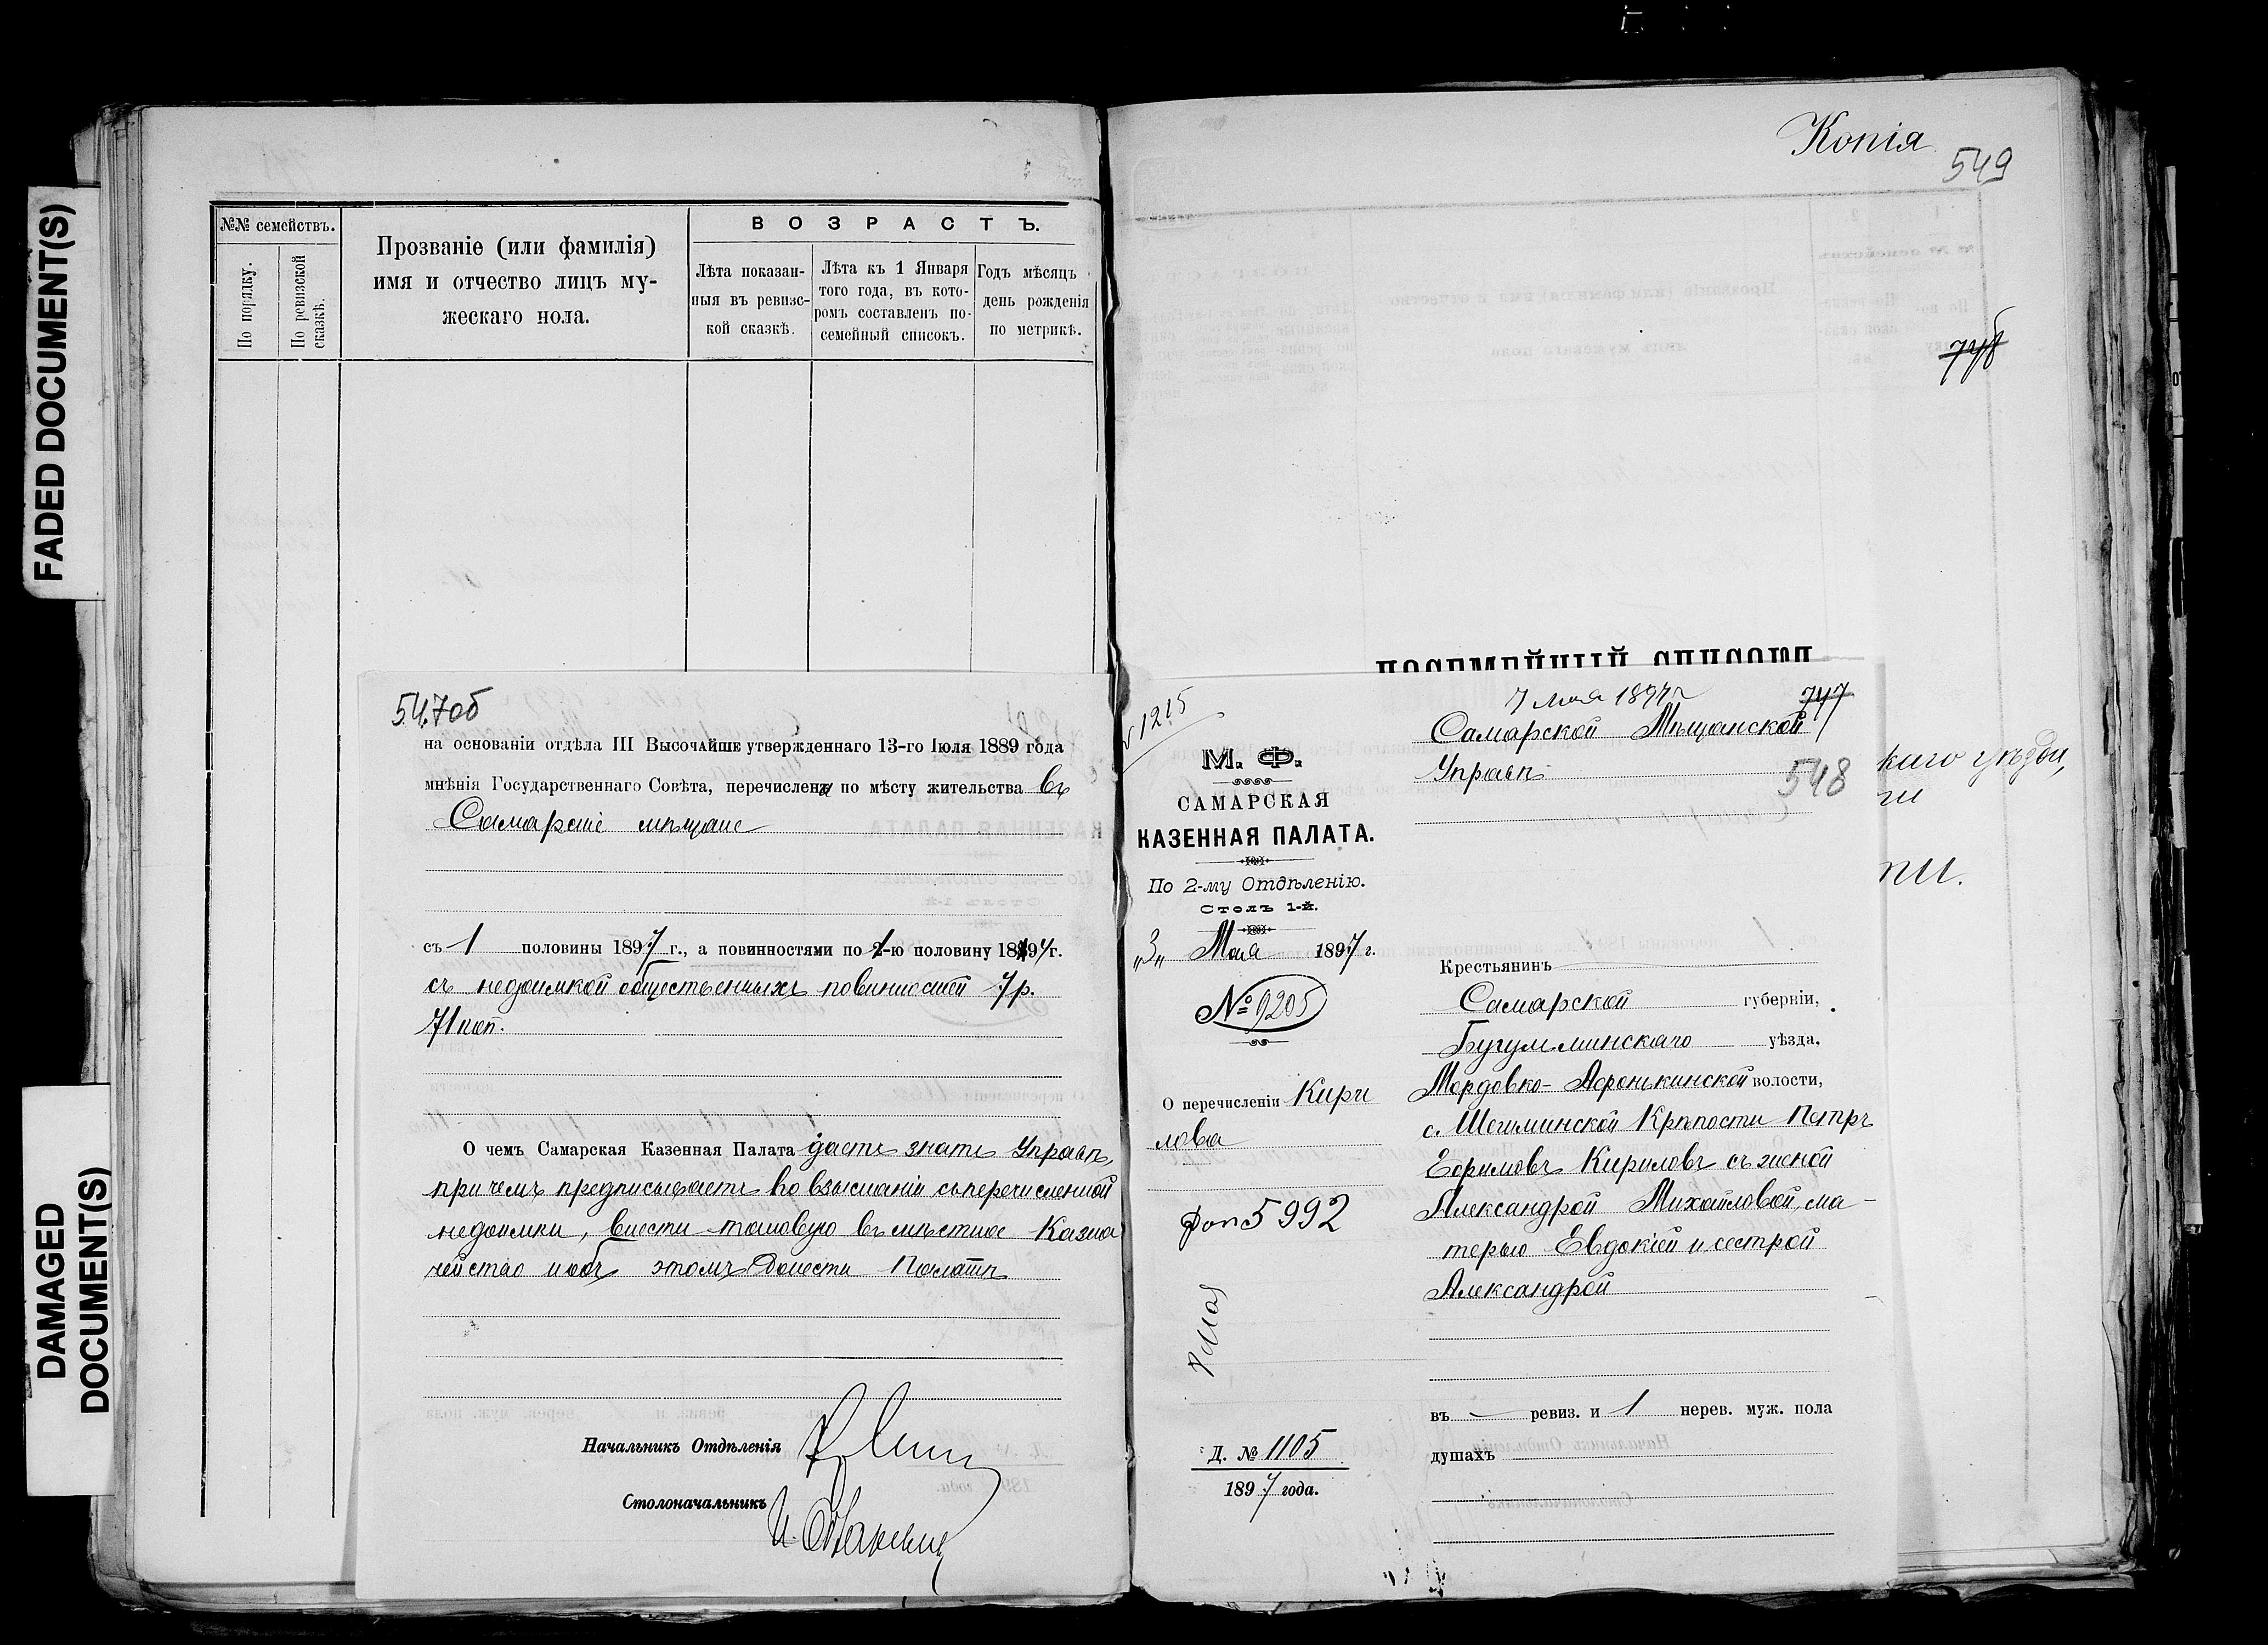 FADED DOCUMENT(S)
DAMAGED
DOCUMENT(S)
№№ семействъ.
По порядку.
По ревизской
сказкѣ.
Прозваніе (или фамилія)
имя и отчество лицъ му-
жескаго пола.
ВОЗРАСТЪ.
Лѣта показан-
ныя въ ревизс-
кой сказкѣ.
Лѣта къ 1 Января
того года, въ кото-
ромъ составленъ по-
семейный списокъ.
Годъ мѣсяцъ
день рожденія
по метрикѣ.
547об
на основаніи отдѣла III Высочайше утвержденнаго 13-го Іюля 1889 года
мнѣнія Государственнаго Совѣта, перечислены по мѣсту жительства въ
Самарскіе мѣщане
съ 1 половины 1897 г., а повинностями по 1-ю половину 1897 г.
съ недоимкой общественныхъ повинностей 7 р.
71 коп.
О чемъ Самарская Казенная Палата даетъ знать Управѣ,
при чемъ предписываетъ по взысканіи съ перечисленной
недоимки, внести таковую въ мѣстное Казна
чейство и объ этомъ донести Палатѣ
Начальникъ Отдѣленія
Столоначальникъ
Копія
549
748
ПОСЕМЕЙНЫЙ СПИСОКЪ
каго уѣзда,
№1215
7 мая 1897 г
747
Самарской Мѣщанской
Управѣ
548
М. Ф.
САМАРСКАЯ
КАЗЕННАЯ ПАЛАТА.
По 2-му Отдѣленію.
Столъ 1-й.
„3„ Мая 1897 г.
№ 9205
О перечисленіи Кири
лова
5992
Д. № 1105
1897 года.
Крестьянинъ
Самарской губерніи,
Бугульминскаго уѣзда,
Мордовко-Афонькинской волости,
с. Шешминской Крѣпости Петръ
Ефимовъ Кириловъ съ женой
Александрой Михайловой, ма-
терью Евдокіей и сестрой
Александрой
въ — ревиз. и 1 нерев. муж. пола
душахъ